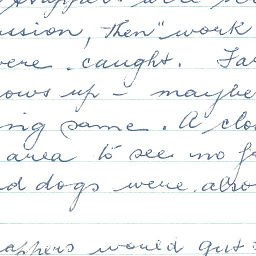 ussion, then "work
were caught. Far
ows up - maybe
ing same. A clo
area to see no f
d dogs were also
appers would get